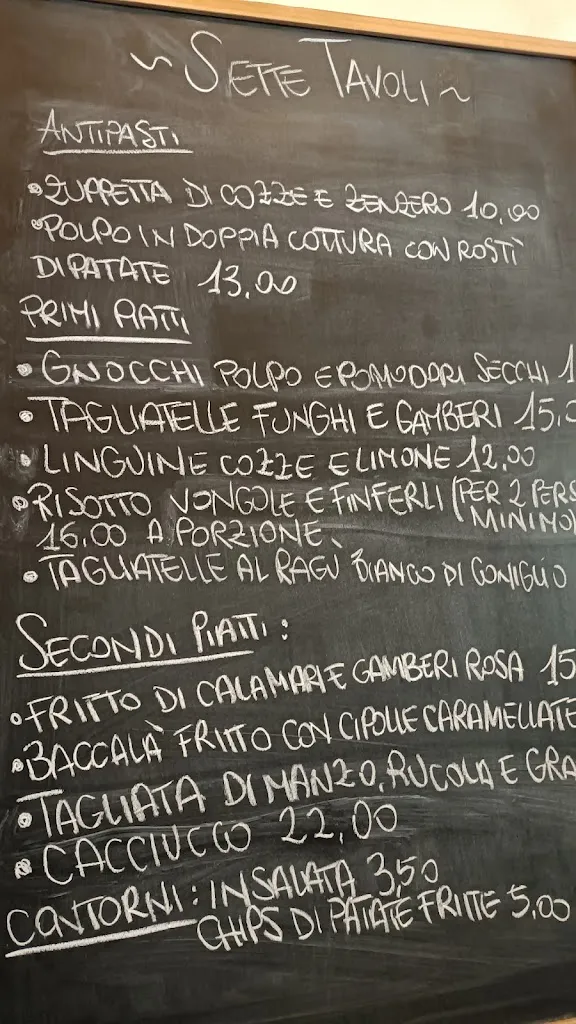 ~ SETTE TAVOLI ~
ANTIPASTI
• ZUPPETTA DI COZZE E ZENZERO 10,00
• POLPO IN DOPPIA COTTURA CON ROSTÌ
DI PATATE 13,00
PRIMI PIATTI
• GNOCCHI POLPO E POMODORI SECCHI 1
• TAGLIATELLE FUNGHI E GAMBERI 15,0
• LINGUINE COZZE E LIMONE 12,00
• RISOTTO VONGOLE E FINFERLI (PER 2 PERS
MINIMO)
16.00 A PORZIONE
• TAGLIATELLE AL RAGÙ BIANCO DI CONIGLIO
SECONDI PIATTI:
• FRITTO DI CALAMARI E GAMBERI ROSA 15
• BACCALÀ FRITTO CON CIPOLLE CARAMELLATE
• TAGLIATA DI MANZO, RUCOLA E GRA
• CACCIUCCO 22,00
CONTORNI: INSALATA 3,50
CHIPS DI PATATE FRITTE 5,00